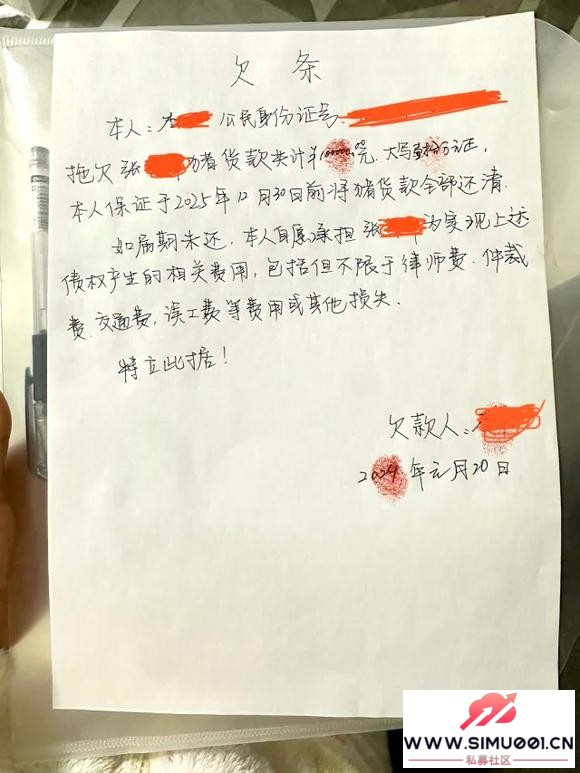 欠条
本人:李 公民身份证号
拖欠张 猪货款共计¥100000.00元,大写 万元正,
本人保证于2025年12月30日前将猪货款全部还清.
如届期未还,本人自愿承担张 为实现上述
债权产生的相关费用,包括但不限于律师费.仲裁
费.交通费,误工费等费用或其他损失.
特立此据!
欠款人:
2024年元月20日
WWW.SIMU001.CN
私募社区